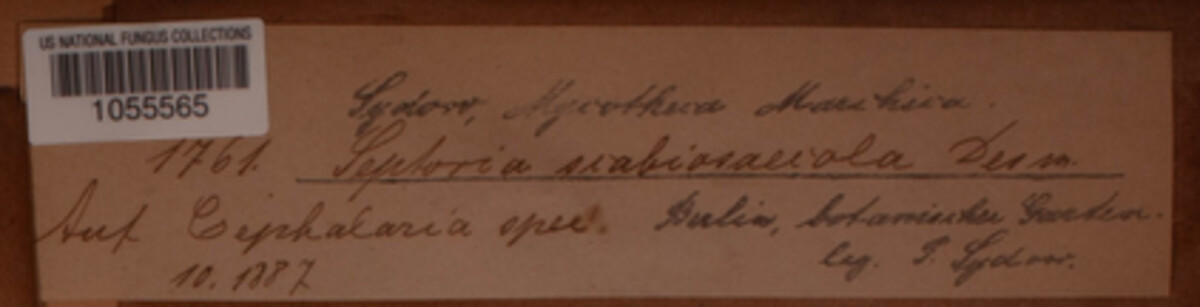 US NATIONAL FUNGUS COLLECTIONS
1055565
Sydow, Mycotheca Marchica.
1761. Septoria scabiosaecola Desm.
Auf Cephalaria spec. Berlin, botanischer Garten.
10. 1887 leg. P. Sydow.